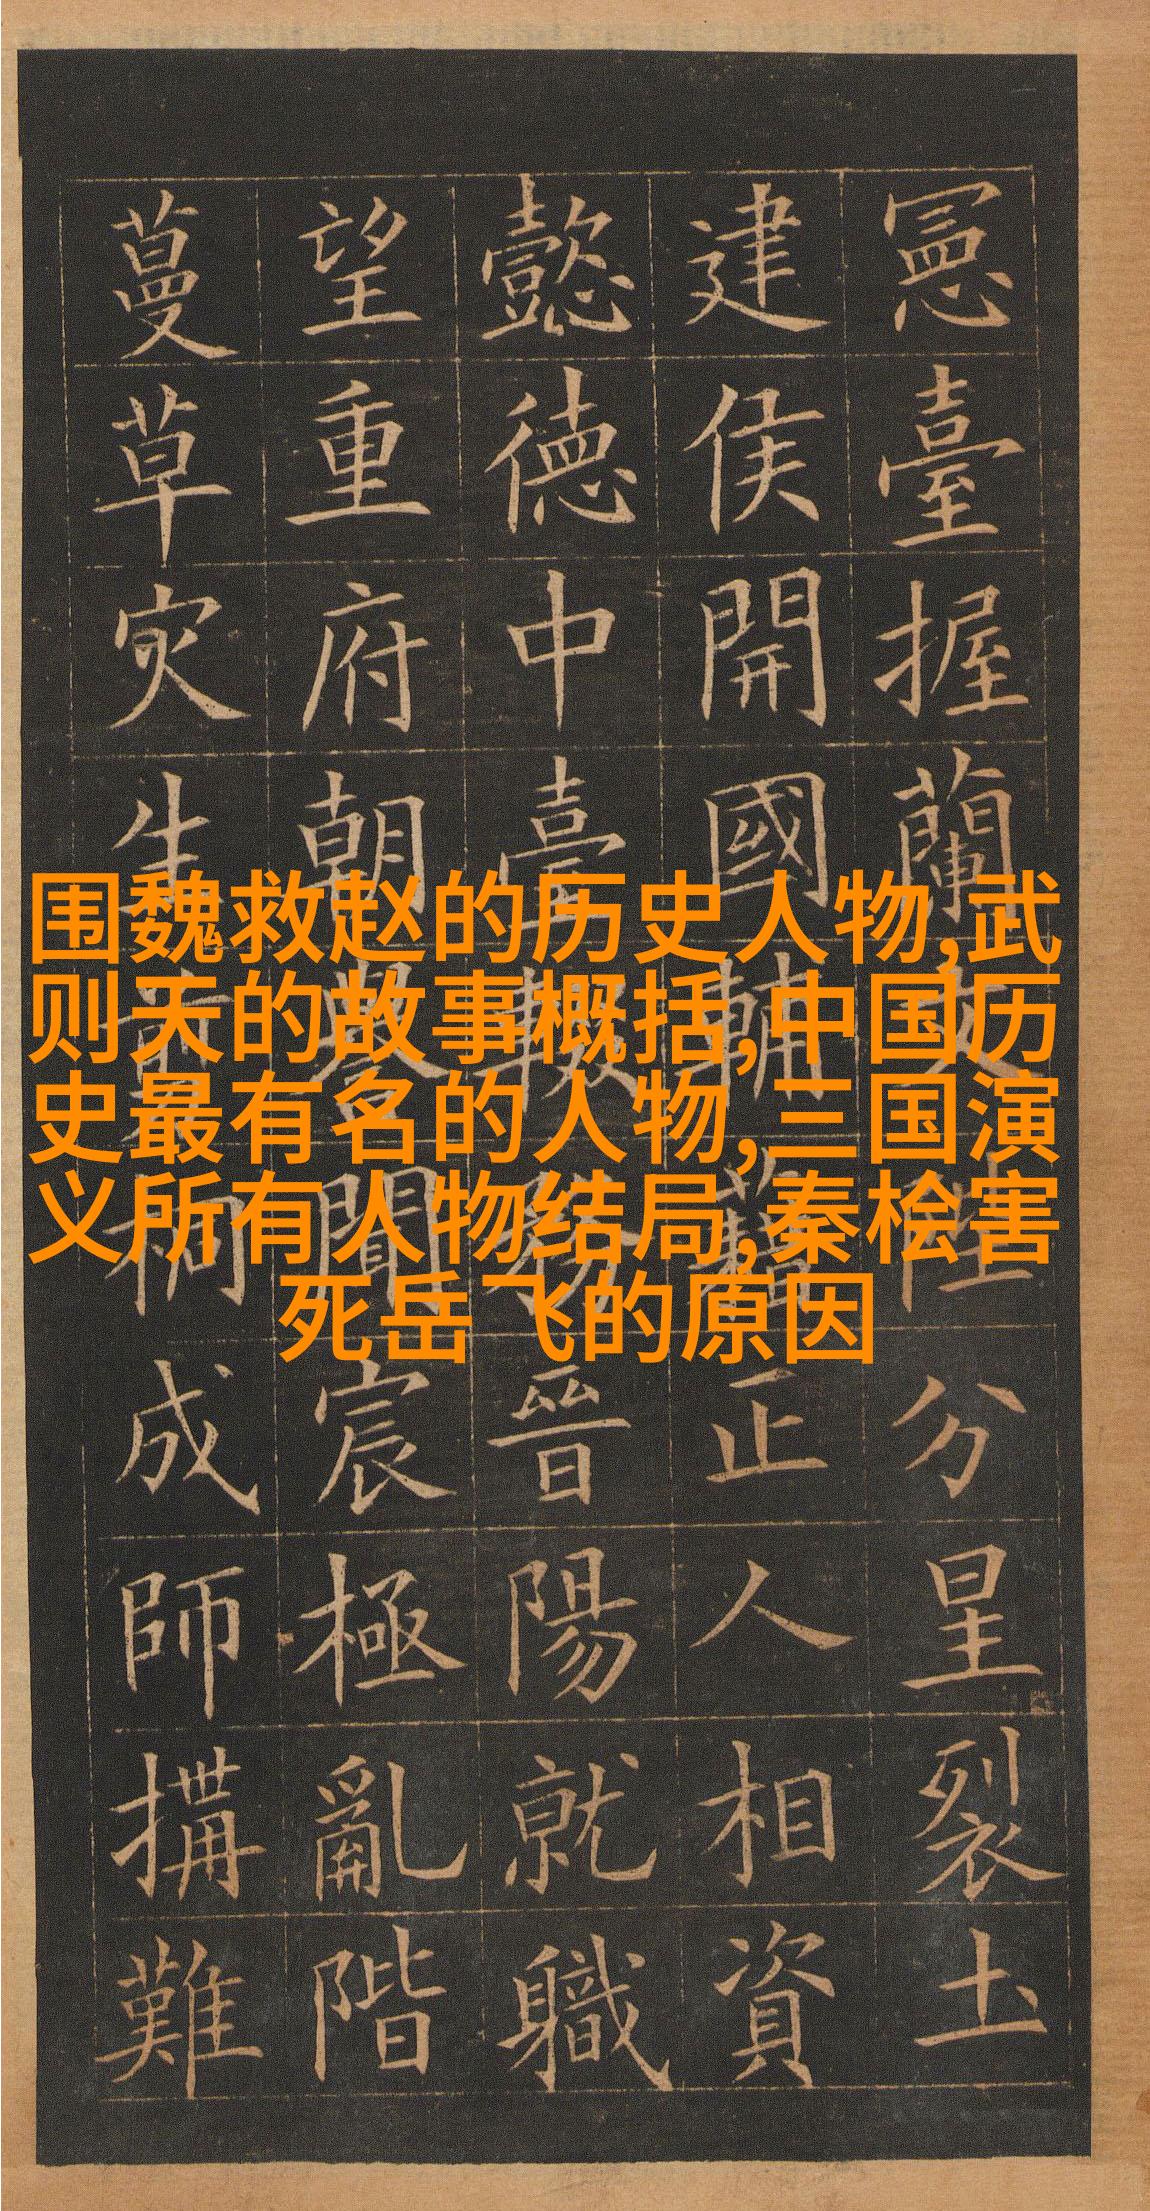 憲臺握蘭文陛分星裂土
建侯開國輔正人相資
懿德中臺晉陽就職
望重府朝譽聞宸極亂階
蔓草灾生柯成師搆難
围魏救赵的历史人物,武
则天的故事概括,中国历
史最有名的人物,三国演
义所有人物结局,秦桧害
死岳飞的原因